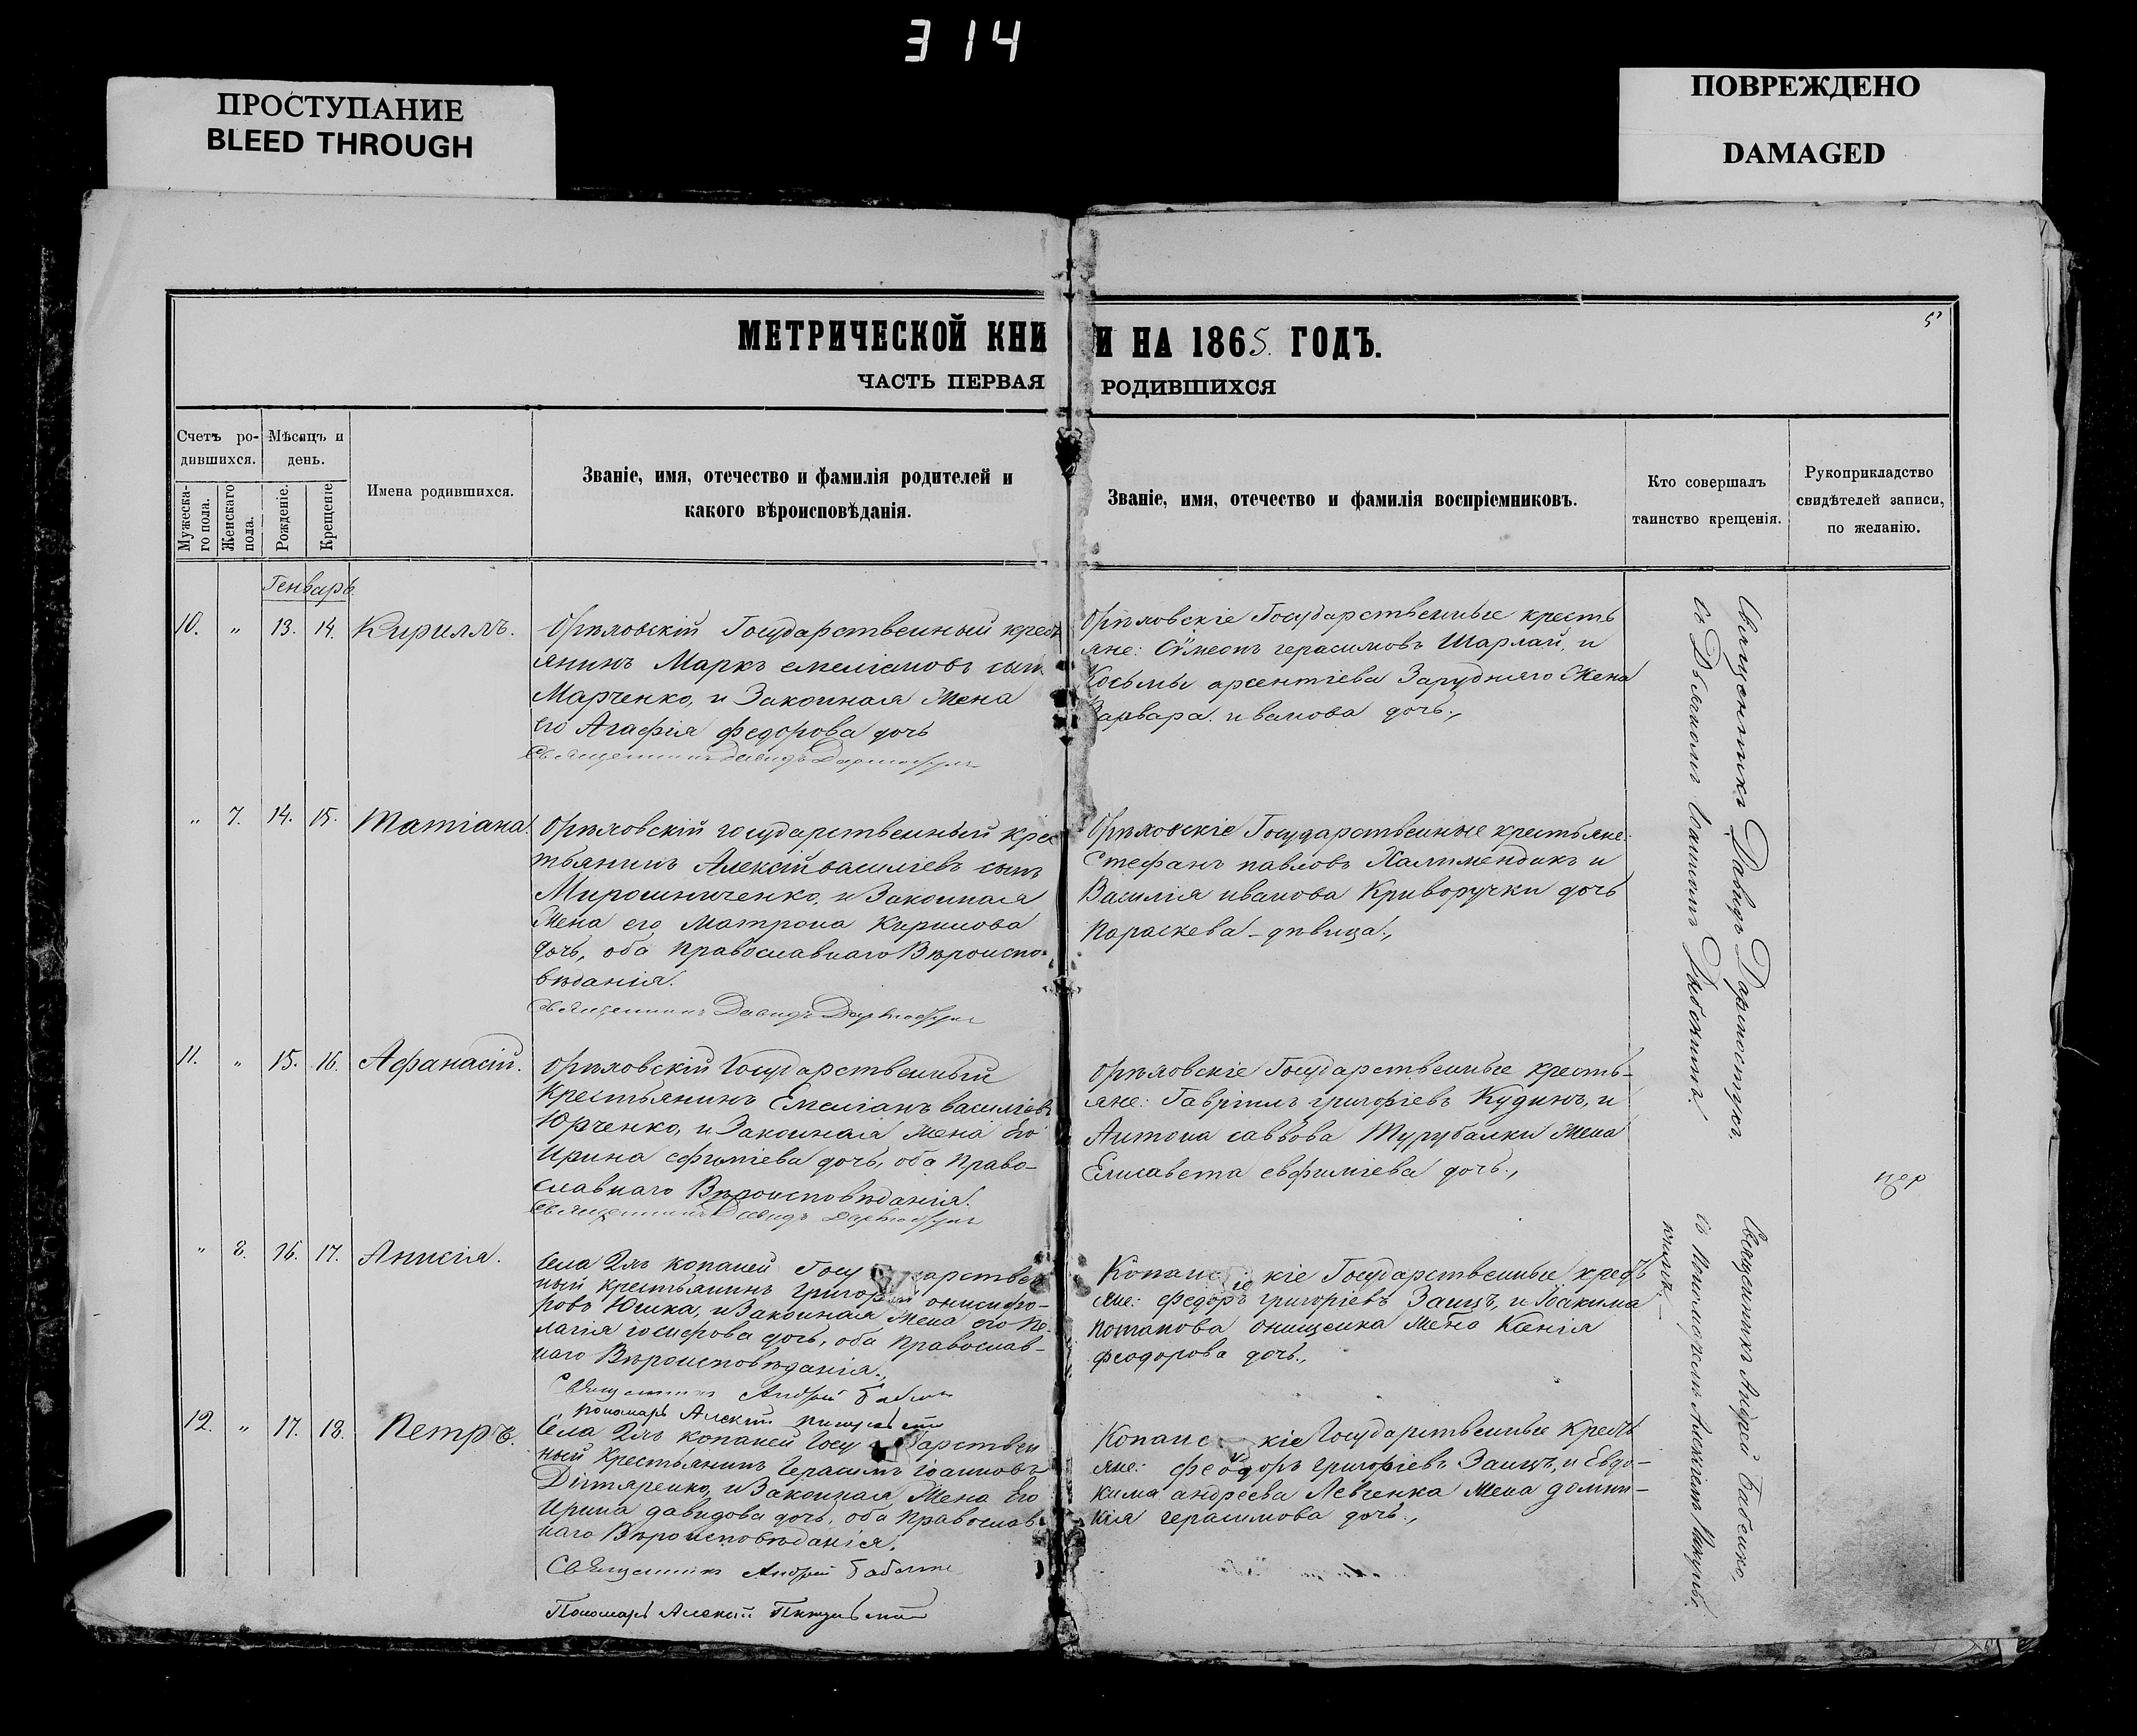 314
ПРОСТУПАНИЕ
BLEED THROUGH
ПОВРЕЖДЕНО
DAMAGED
5
МЕТРИЧЕСКОЙ КНИ И НА 1865. ГОДЪ.
ЧАСТЬ ПЕРВАЯ РОДИВШИХСЯ
Счетъ ро-
дившихся.
Мѣсяцъ и
день.
Мужеска-
го пола.
Женскаго
пола.
Рожденіе.
Крещеніе
Имена родившихся.
Званіе, имя, отечество и фамилія родителей и
какого вѣроисповѣданія.
Званіе, имя, отечество и фамилія воспріемниковъ.
Кто совершалъ
таинство крещенія.
Рукоприкладство
свидѣтелей записи,
по желанію.
Генварь
10. „ 13. 14. Кириллъ.
Орѣловскій Государственный крест
янинъ Маркъ емеліановъ сын
Марченко, и Законная Жена
его Агафія федорова дочь
Священникъ Давидъ
Орѣловскіе Государственные кресть
яне: Сѵмеонъ герасимовъ Шарлай, и
Косьмы арсентіева Зарудняго Жена
Варвара иванова дочь.,
„ 7. 14. 15. Татіана.
Орѣловскій государственный крес
тьянинъ Алексій василіевъ сынъ
Мирошниченко, и Законная
Жена его Матрона Кирилова
дочь, оба православнаго Вѣроиспо-
вѣданія.
Священникъ Давидъ
Орѣловскіе Государственные крестьяне:
Стефанъ павловъ Халимендикъ и
Василія иванова Криворучки дочь
Параскева - дѣвица.,
11. „ 15. 16. Афанасій.
Орѣловскій Государственный
Крестьянинъ Емеліанъ василіевъ
Юрченко, и Законная Жена его
Ирина ефиміева дочь, оба Право-
славнаго Вѣроисповѣданія.
Священникъ Давидъ
Орѣловскіе Государственные кресть-
яне: Гавріилъ григоріевъ Кудинъ, и
Антона саввова Турубалки Жена
Елисавета евфиміева дочь.,
„ 8. 16. 17. Анисія.
Села копаней Госу дарствен
ный крестьянинъ Григорій онисифо-
ровъ Юшка, и Законная Жена его Пе-
лагія іосифова дочь, оба Православ-
наго Вѣроисповѣданія.,
Священникъ Андрей Бабенко
Пономарь Алексій
Копанс кіе Государственные крес
яне: федоръ григоріевъ Заицъ, и Іоакима
потапова онищенка Жена Ксенія
феодорова дочь.,
12. „ 17. 18. Петръ.
Села копаней Госу дарствен
ный Крестьянинъ Герасимъ іоанновъ
Дігтяренко, и Законная Жена его
Ирина давидова дочь, оба Православ-
наго Вѣроисповѣданія.
Священникъ Андрей Бабенко
Пономарь Алексій
Копанс кіе Государственные Крест
яне: феодоръ григоріевъ Заицъ, и Евдо-
кима андреева Левченка Жена домни-
кія герасимова дочь.,
Священникъ Давидъ
съ Дьякономъ
Священникъ Андрей Бабенко,
съ Пономаремъ Алексіемъ